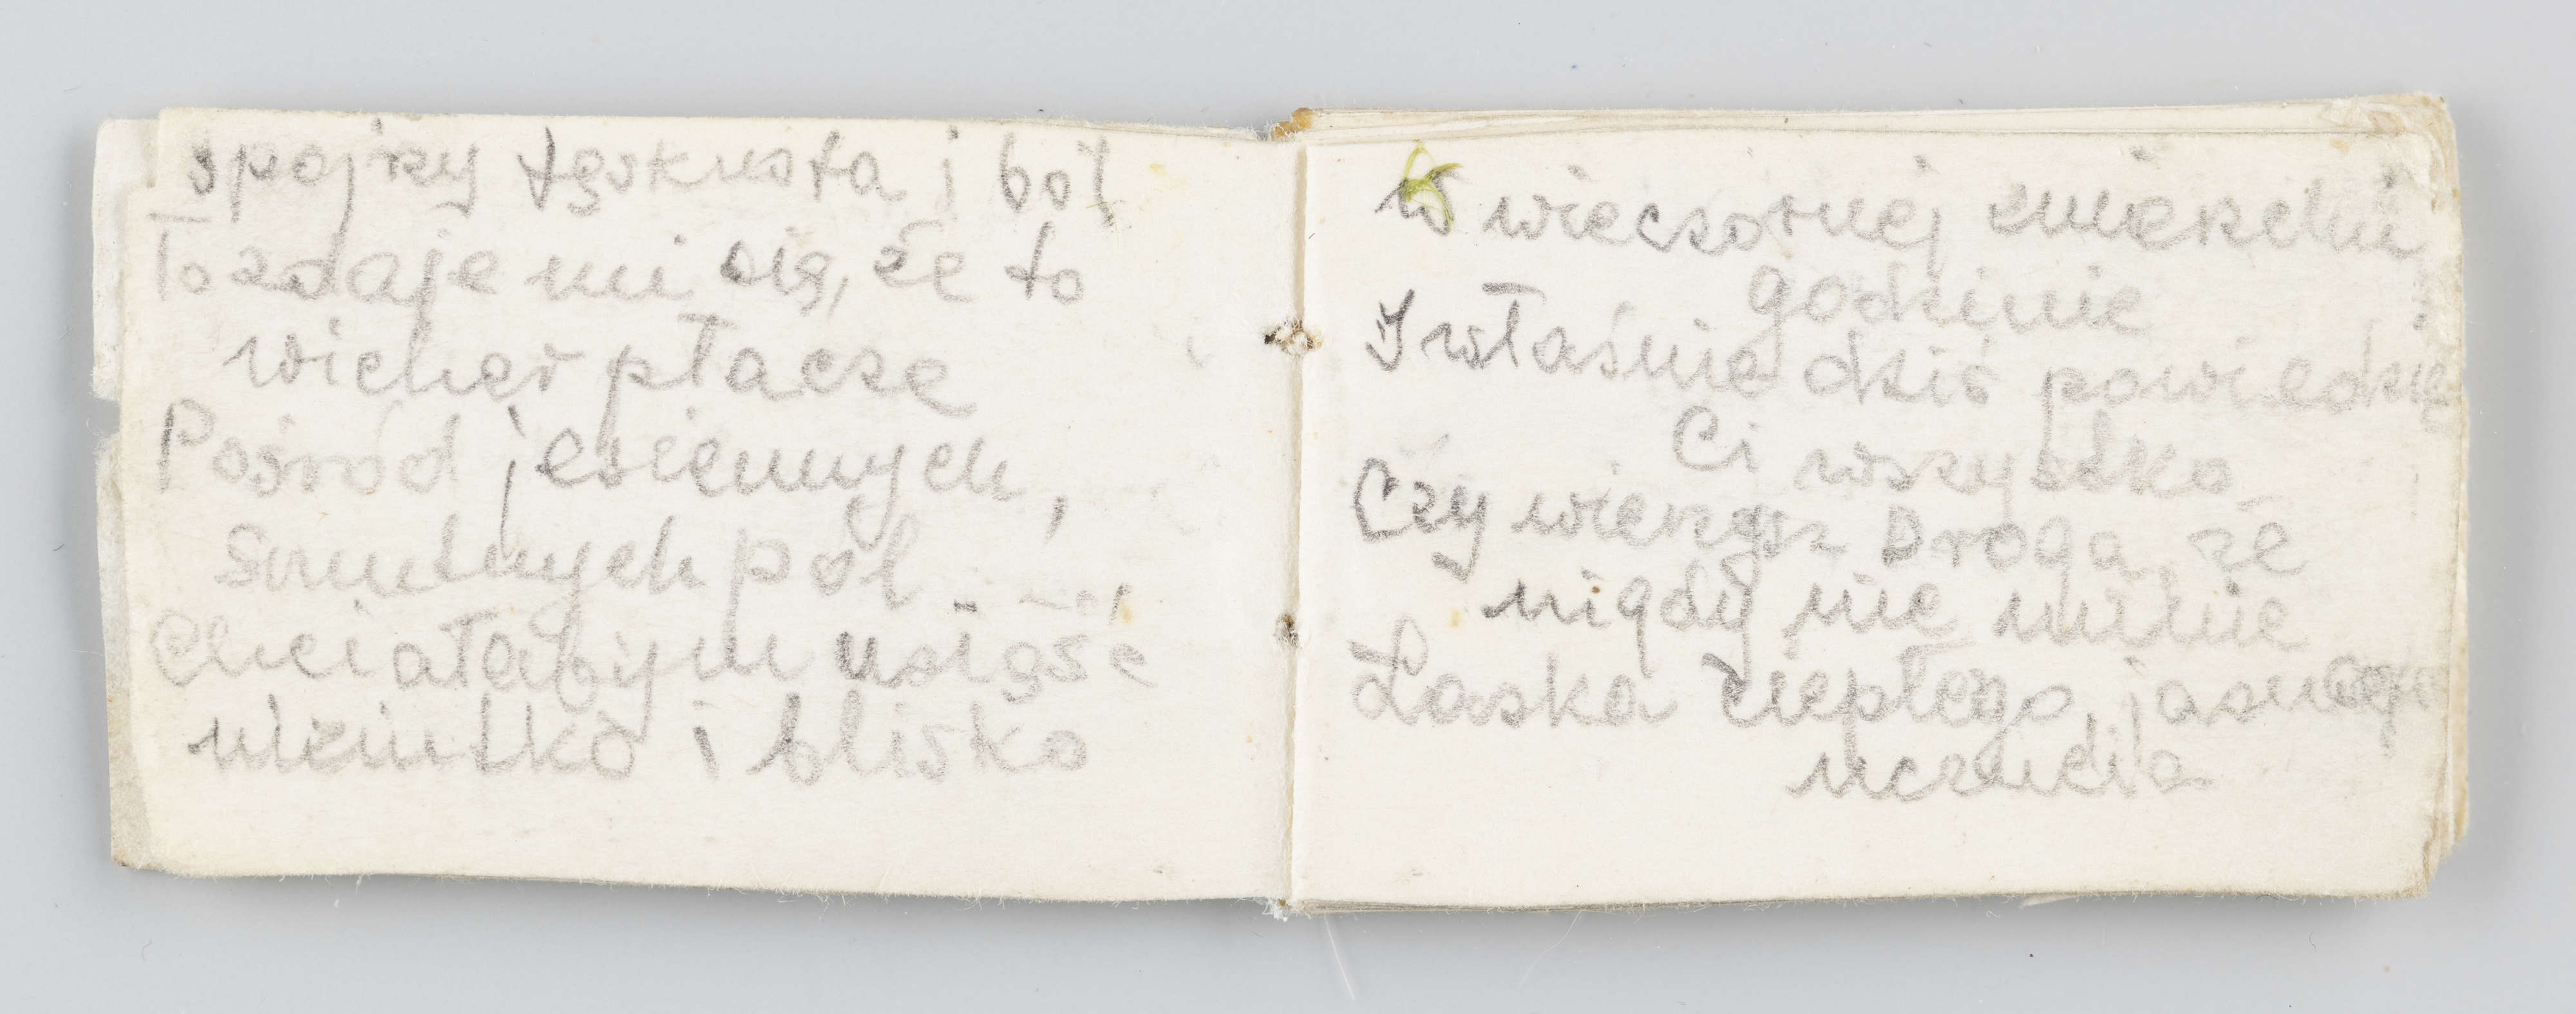 spojrzy tęsknota i ból
To zdaje mi się, że to
wicher płacze
Pośród jesiennych,
smutnych pól
Chciałabym usiąść
milutko i blisko
W wieczornej zmierzchu
godzinie
I właśnie dziś powiedzieć
Ci wszystko
Czy wierzysz Droga, że
nigdy nie minie
Łaska ciepłego, jasnego
uczucia